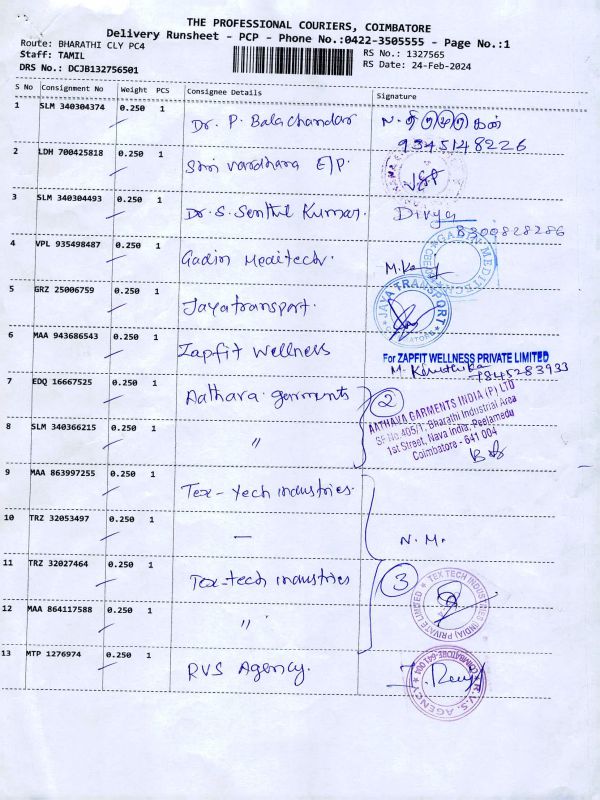 THE PROFESSIONAL COURIERS, COIMBATORE
Delivery Runsheet - PCP - Phone No.:0422-3505555 - Page No.:1
Route: BHARATHI CLY PC4
RS No.: 1327565
Staff: TAMIL
RS Date: 24-Feb-2024
DRS No.: DCJB132756501
S No Consignment No Weight PCS Consignee Details Signature
1 SLM 340304374 0.250 1 Dr. P. Balachandar
9345148226
2 LDH 700425818 0.250 1 Shri vardhana E/P.
3 SLM 340304493 0.250 1 Dr. S. Senthil Kumar. Divya
8300828286
4 VPL 935498487 0.250 1 Gadin Meditech.
MEDITECH
5 GRZ 25006759 0.250 1 Jayatransport.
JAYA TRANSPORT
6 MAA 943686543 0.250 1 Zapfit wellness
For ZAPFIT WELLNESS PRIVATE LIMITED
M. Karuthika
7845283933
7 EDQ 16667525 0.250 1 Aathava garments
2
AATHAVA GARMENTS INDIA (P) LTD
SF No 405/1, Bharathi Industrial Area
1st Street, Nava India, Peelamedu
Coimbatore - 641 004
8 SLM 340366215 0.250 1 〃
9 MAA 863997255 0.250 1 Tex-Tech industries.
10 TRZ 32053497 0.250 1 —
N. M.
11 TRZ 32027464 0.250 1 Tex-tech industries
3
TEX TECH INDUSTRIES (INDIA) PRIVATE LIMITED
12 MAA 864117588 0.250 1 〃
13 MTP 1276974 0.250 1 RVS Agency.
R.V.S. AGENCY
COIMBATORE-641 004